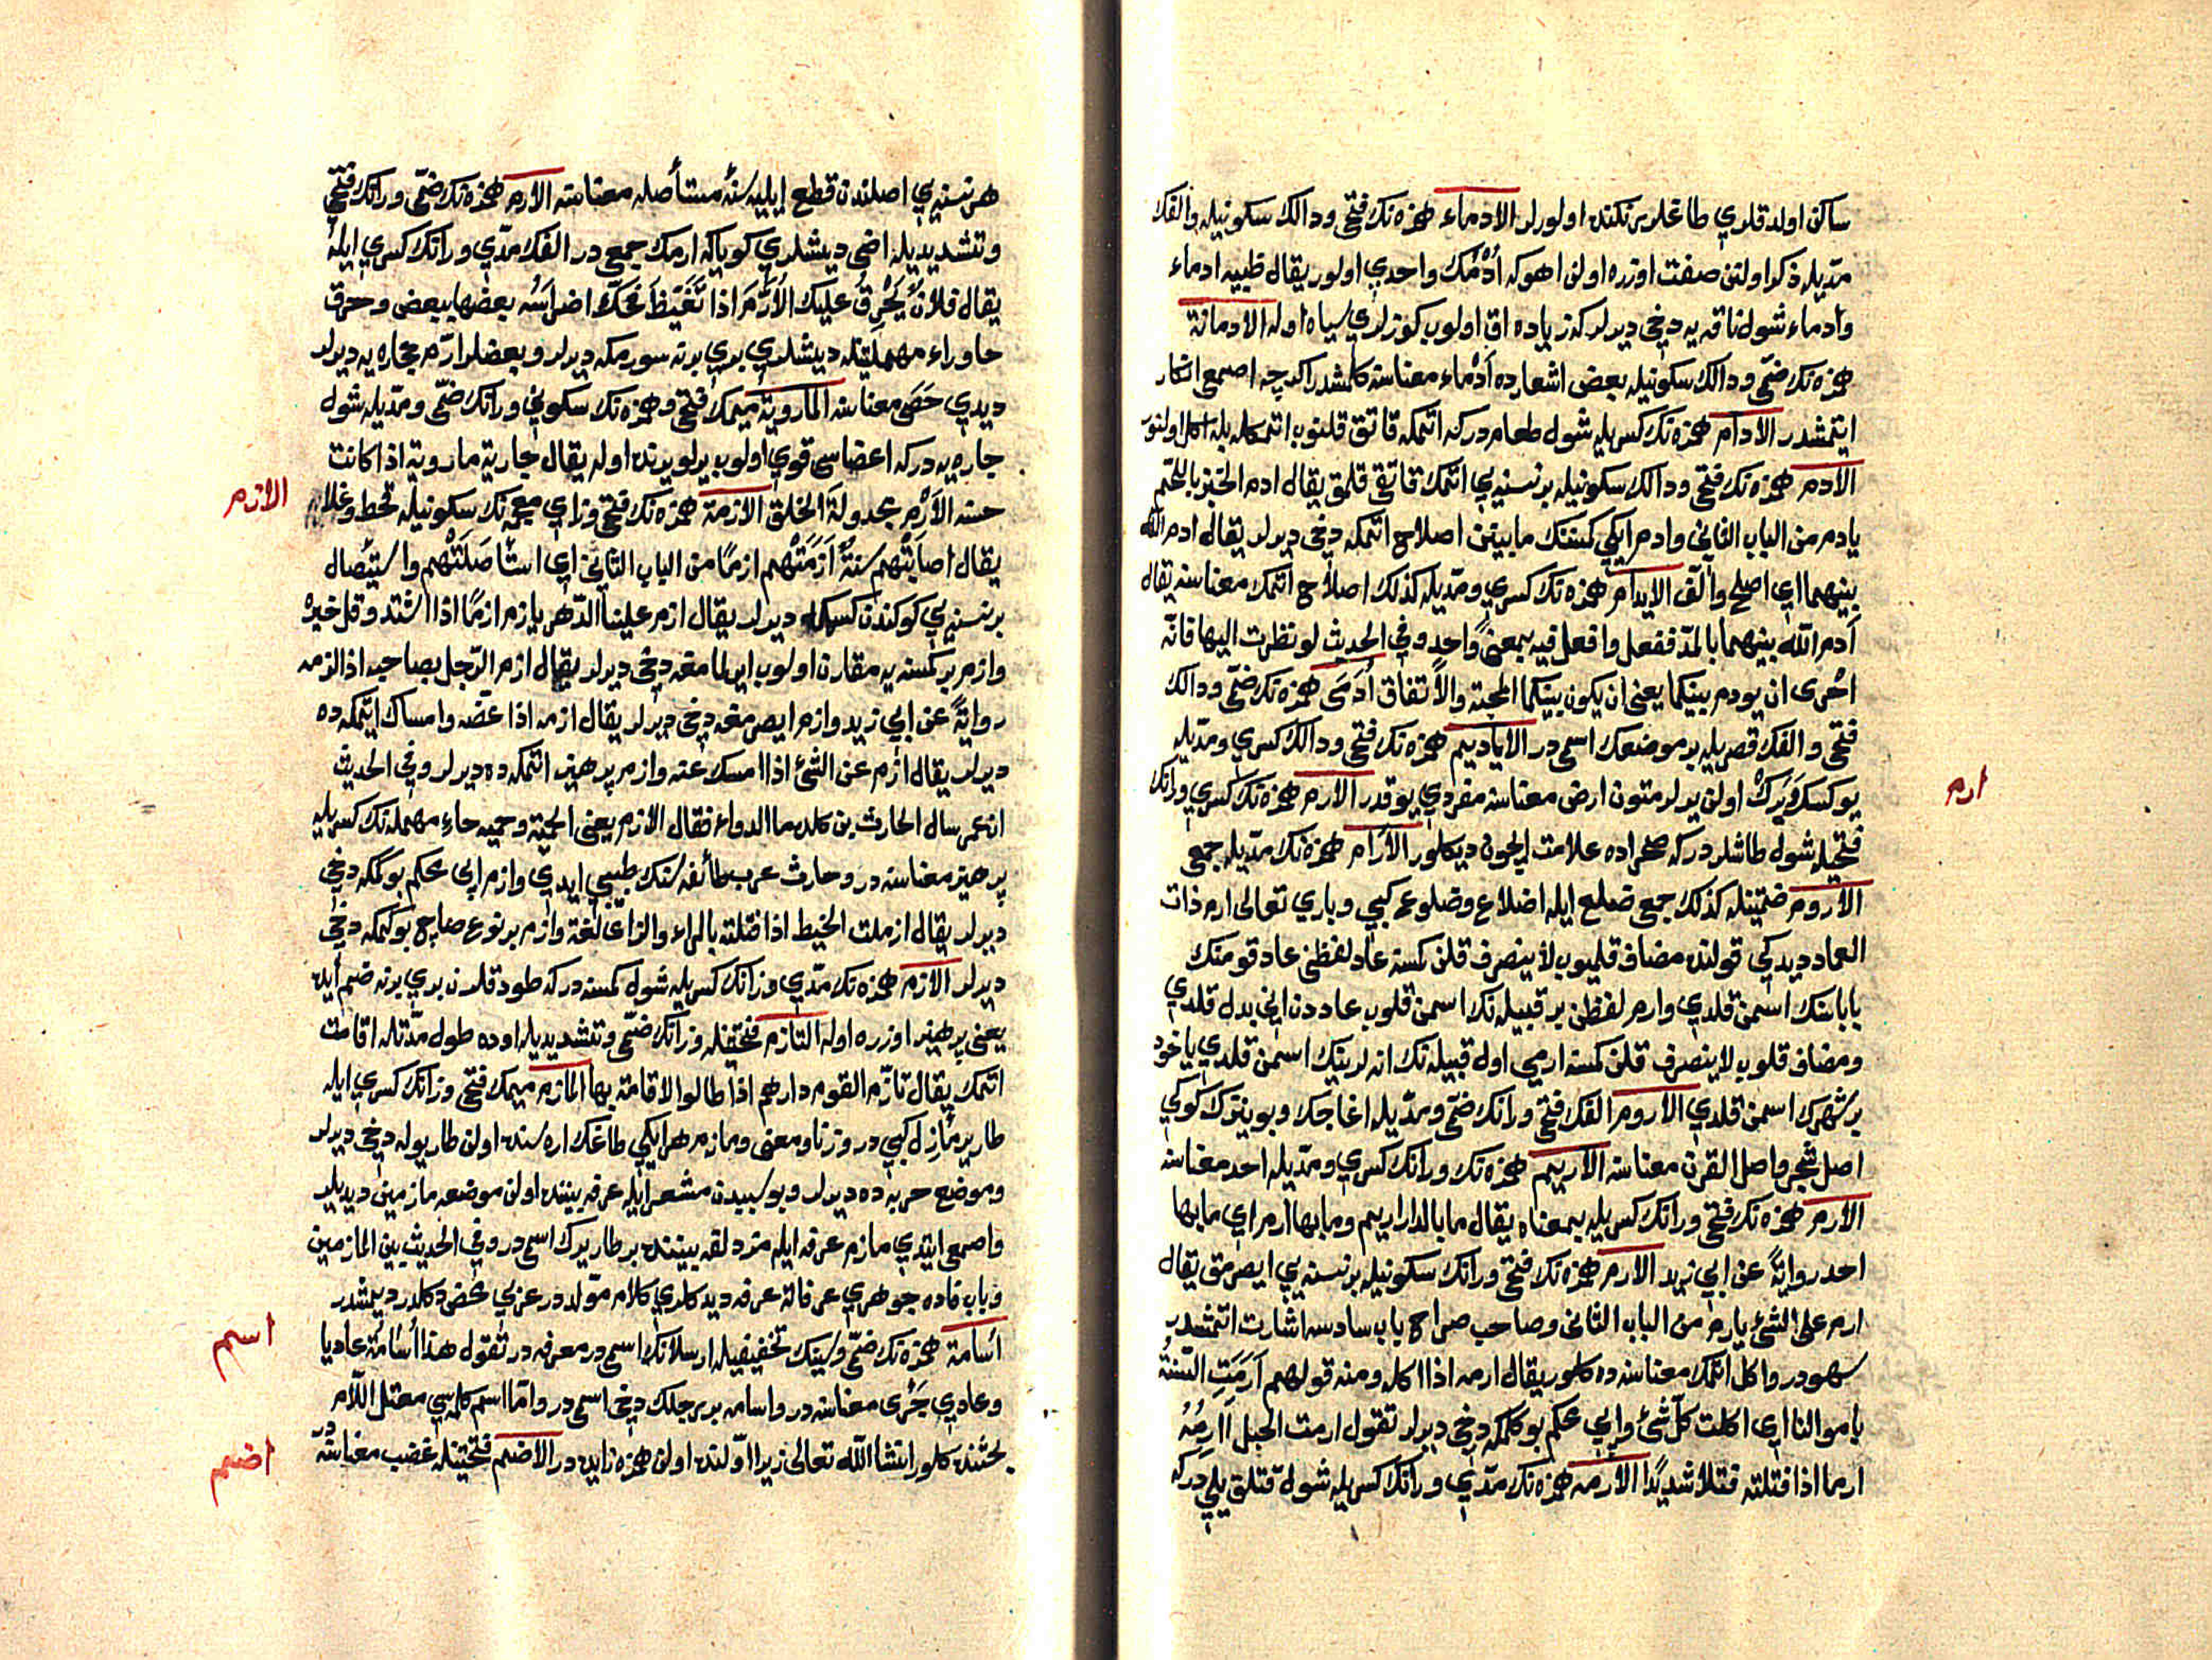 ساكن اولدقلري طاغلرينكنده اولورلر الادماء همزه نك فتحي ودالك سكونيله والفك
مديله ذكر اولنن صفت اوزره اولن اهوكه اُدْمُك واحدي اولور يقال ظبية ادماء
وادماء شول ناقه يه دخي ديرلر كه زياده اق اولوب كوزلري سياه اوله الادمانة
همزه نك ضمي ودالك سكونيله بعض اشعارده اَدْماء معناسنه كلمشدر اكرچه اصمعي انكار
ايتمشدر الادام همزه نك كسريله شول طعامدركه اتمكه قاتق قلنوب اتمكله بله اكل اولنور
الادم همزه نك فتحي ودالك سكونيله برنسنه يي اتمك قاتق قلمق يقال ادم الخبز باللحم
يادم من الباب الثاني وادم ايكي كمسنك مابينن اصلاح اتمكه دخي ديرلر يقال ادم الله
بينهما اي اصلح والف الايدام همزه نك كسري ومديله كذلك اصلاح اتمك معناسنه يقال
آدم الله بينهما بالمد ففعل وافعل فيه بمعنى واحد وفي الحديث لو نظرت اليها فانه
احرى ان يودم بينكما يعني ان يكون بينكما المحبة والاتفاق اُدَمَى همزه نك ضمي ودالك
فتحي والفك قصريله بر موضعك اسمي در الاياديم همزه نك فتحي ودالك كسري ومديله
يوكسكرك اولن يرلر متون ارض معناسنه مفردي يوقدر الارم همزه نك كسري ورانك
فتحيله شول طاشلردركه صحراده علامت ايچون ديكلور الآرام همزه نك مديله جمعي
الاروم ضمتينله كذلك جمع ضلع ايله اضلاع وضلوع كبي وباري تعالى ارم ذات
العماد ديدكي قولنده مضاف قلميوب لاينصرف قلن كسنه عاد لفظني عاد قومنك
باباسنك اسمن قلدي وارم لفظن بر قبيله نك اسمن قلوب عاددن اني بدل قلدي
ومضاف قلوب لاينصرف قلن كسنه ارمي اول قبيله نك انه لرينك اسمن قلدي ياخود
بر شهرك اسمن قلدي الاروم الفك فتحي ورانك ضمي ومديله اغاجك وبوينزك كوكي
اصل شجر واصل القرن معناسنه الاريم همزه نك ورانك كسري ومديله احد معناسنه
الارم همزه نك فتحي ورانك كسريله بمعناه يقال ما بالدار اريم وما بها ارم اي ما بها
احد رواية عن ابي زيد الارم همزه نك فتحي ورانك سكونيله برنسنه يي ايصرمق يقال
ارم على الشئ يارم من الباب الثاني وصاحب صراح باب سادسه اشارت اتمشدر
سهودر واكل اتمك معناسنه ده كلور يقال ارمه اذا اكله ومنه قولهم اَرَمَتِ السَّنَةُ
باموالنا اي اكلت كل شئ وايپ محكم بوكلمكه دخي ديرلر تقول ارمت الحبل آرِمُهُ
ارما اذا فتلته فتلا شديدًا الآرمة همزه نك مدي ورانك كسريله شول قتلق ييلي دركه
ارم
هر نسنه يي اصلندن قطع ايليه سنة مستأصله معناسنه الارم همزه نك ضمي ورانك فتحي
وتشديديله اضي ديشلري كوياكه ارمك جمعي در الفك مدي ورانك كسري ايله
يقال فلانٌ يَحْرِقُ عليك الأُرَّمَ اذا تَغَيَّظَ فحكّ اضراسَه بعضها ببعض وحرق
حا وراء مهملتينله ديشلري بري برنه سورمكه ديرلر وبعضلر ارّم حجاره يه ديرلر
ديدي حَصَى معناسنه المارومة ميمك فتحي وهمزه نك سكوني ورانك ضمي ومديله شول
جاريه دركه اعضاسي قوي اولوب يرلو يرنده اوله يقال جارية مارومة اذا كانت
حسنه الاَرْم مجدولة الخلق الازمة همزه نك فتحي وزاي معجمه نك سكونيله قحط وغلا
يقال اصابَتْهم سَنةٌ اَزَمَتْهم ازمًا من الباب الثاني اي استأصَلَتْهم واستيصال
برنسنه يي كوكندن كسمكه ديرلر يقال ازم علينا الدهر يازم ازمًا اذا اشتد وقل خيره
وازم بر كمسنه يه مقارن اولوب ايرلمامغه دخي ديرلر يقال ازم الرجل بصاحبه اذا لزمه
رواية عن ابي زيد وازم ايصرمغه دخي ديرلر يقال ازمه اذا عضه وامساك ايتمكه ده
ديرلر يقال ازم عن الشئ اذا امسك عنه وازم پرهيز اتمكه ده ديرلر وفي الحديث
ان عمر سال الحارث بن كلده ما الدواء فقال الازم يعني الحمية وحميه حاء مهمله نك كسريله
پرهيز معناسنه در وحارث عرب طائفه سنك طبيبي ايدي وازم ايپي محكم بوكمكه دخي
ديرلر يقال ازمت الخيط اذا فتلته بالراء والزاء لغة وازم برنوع صاچ بوكمكه دخي
ديرلر الآزم همزه نك مدي وزانك كسريله شول كمسنه دركه طوداقلرن بري برنه ضم ايده
يعني پرهيز اوزره اوله التازم فتحتينله وزانك ضمي وتشديديله اوده طول مدتله اقامت
اتمك يقال تازم القوم دارهم اذا طالوا الاقامة بها المازم ميمك فتحي وزانك كسري ايله
طار ير مأزل كبي در وزنا ومعنى ومازم هر ايكي طاغك اره سنده اولن طار يوله دخي ديرلر
وموضع حربه ده ديرلر وبو سببدن مشعر ايله عرفه بيننده اولن موضعه مازمين ديديلر
واصمعي ايتدي مازم عرفه ايله مزدلفه بيننده بر طار يرك اسمي در وفي الحديث بين المازمين
وباب فاده جوهري عرفاتة عرفه ديدكلري كلام مولددر عربي محض دكلدر ديمشدر
اُسامة همزه نك ضمي وسينك تخفيفيله ارسلانك اسمي در معرفه در تقول هذا اُسامَةُ عاديا
وعادي جَرَى معناسنه در واسامه بر رجلك دخي اسمي در واما اسم كلمه سي معتل اللام
بحثنده كلور انشا الله تعالى زيرا اولنده اولن همزه زايده در الاضم فتحتينله غضب معناسنه در
الازم
اسم
اضم